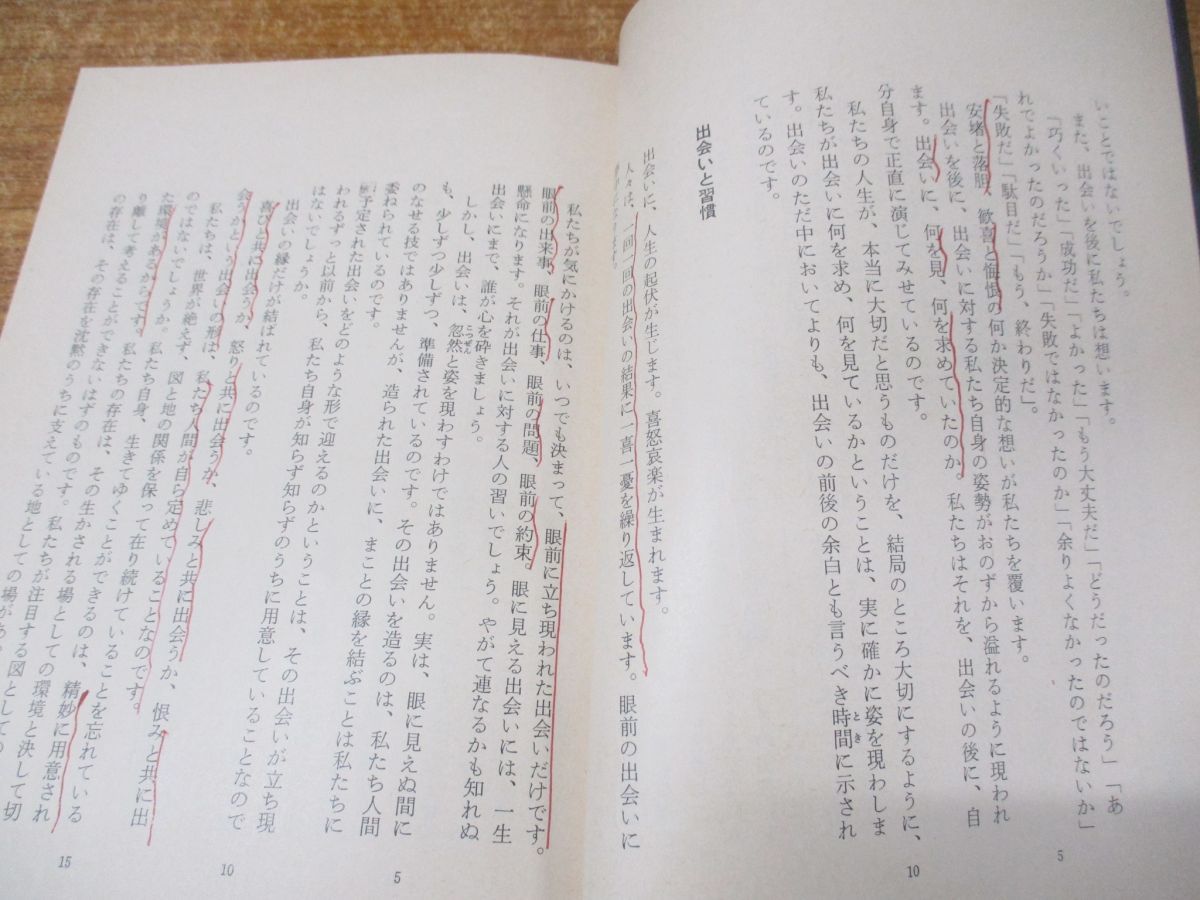 いことではないでしょう。
また、出会いを後に私たちは想います。
「巧くいった」「成功だ」「よかった」「もう大丈夫だ」「どうだったのだろう」「あ
れでよかったのだろうか」「失敗ではなかったのか」「余りよくなかったのではないか」
「失敗だ」「駄目だ」「もう、終わりだ」。
安堵と落胆、歓喜と悔恨の何か決定的な想いが私たちを覆います。
出会いを後に、出会いに対する私たち自身の姿勢がおのずから溢れるように現われ
ます。出会いに、何を見、何を求めていたのか。私たちはそれを、出会いの後に、自
分自身で正直に演じてみせているのです。
私たちの人生が、本当に大切だと思うものだけを、結局のところ大切にするように、
私たちが出会いに何を求め、何を見ているかということは、実に確かに姿を現わしま
す。出会いのただ中においてよりも、出会いの前後の余白とも言うべき時間に示され
とき
ているのです。
出会いと習慣
出会いに、人生の起伏が生じます。喜怒哀楽が生まれます。
人々は、一回一回の出会いの結果に一喜一憂を繰り返しています。眼前の出会いに
5
10
私たちが気にかけるのは、いつでも決まって、眼前に立ち現われた出会いだけです。
眼前の出来事、眼前の仕事、眼前の問題、眼前の約束。眼に見える出会いには、一生
懸命になります。それが出会いに対する人の習いでしょう。やがて連なるかも知れぬ
出会いにまで、誰が心を砕きましょう。
しかし、出会いは、忽然と姿を現わすわけではありません。実は、眼に見えぬ間に
こつぜん
も、少しずつ少しずつ、準備されているのです。その出会いを造るのは、私たち人間
のなせる技ではありませんが、造られた出会いに、まことの縁を結ぶことは私たちに
委ねられているのです。
予定された出会いをどのような形で迎えるのかということは、その出会いが立ち現
われるずっと以前から、私たち自身が知らず知らずのうちに用意していることなので
はないでしょうか。
出会いの縁だけが結ばれているのです。
喜びと共に出会うか、怒りと共に出会うか、悲しみと共に出会うか、恨みと共に出
会うかという出会いの形は、私たち人間が自ら定めていることなのです。
私たちは、世界が絶えず、図と地の関係を保って在り続けていることを忘れている
のではないでしょうか。私たち自身、生きてゆくことができるのは、精妙に用意され
た環境があるからです。私たちの存在は、その生かされる場としての環境と決して切
り離して考えることができないはずのものです。私たちが注目する図としての
の存在は、その存在を沈黙のうちに支えている地としての場があ
5
10
15